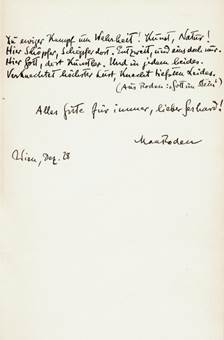 In ewiger Kampf um Wahrheit! Kunst, Natur!
Hier Schöpfer, Schöpfer dort. Entzweit, und eins doch nur.
Hier Gott, dort Künstler. Und in jedem beides.
Verknechtet höchster Lust, Knecht tiefsten Leides.
(Aus Roden: „Gott im Stein)
Alles Gute für immer, lieber Gerhard!
Max Roden
Wien, Dez. 28